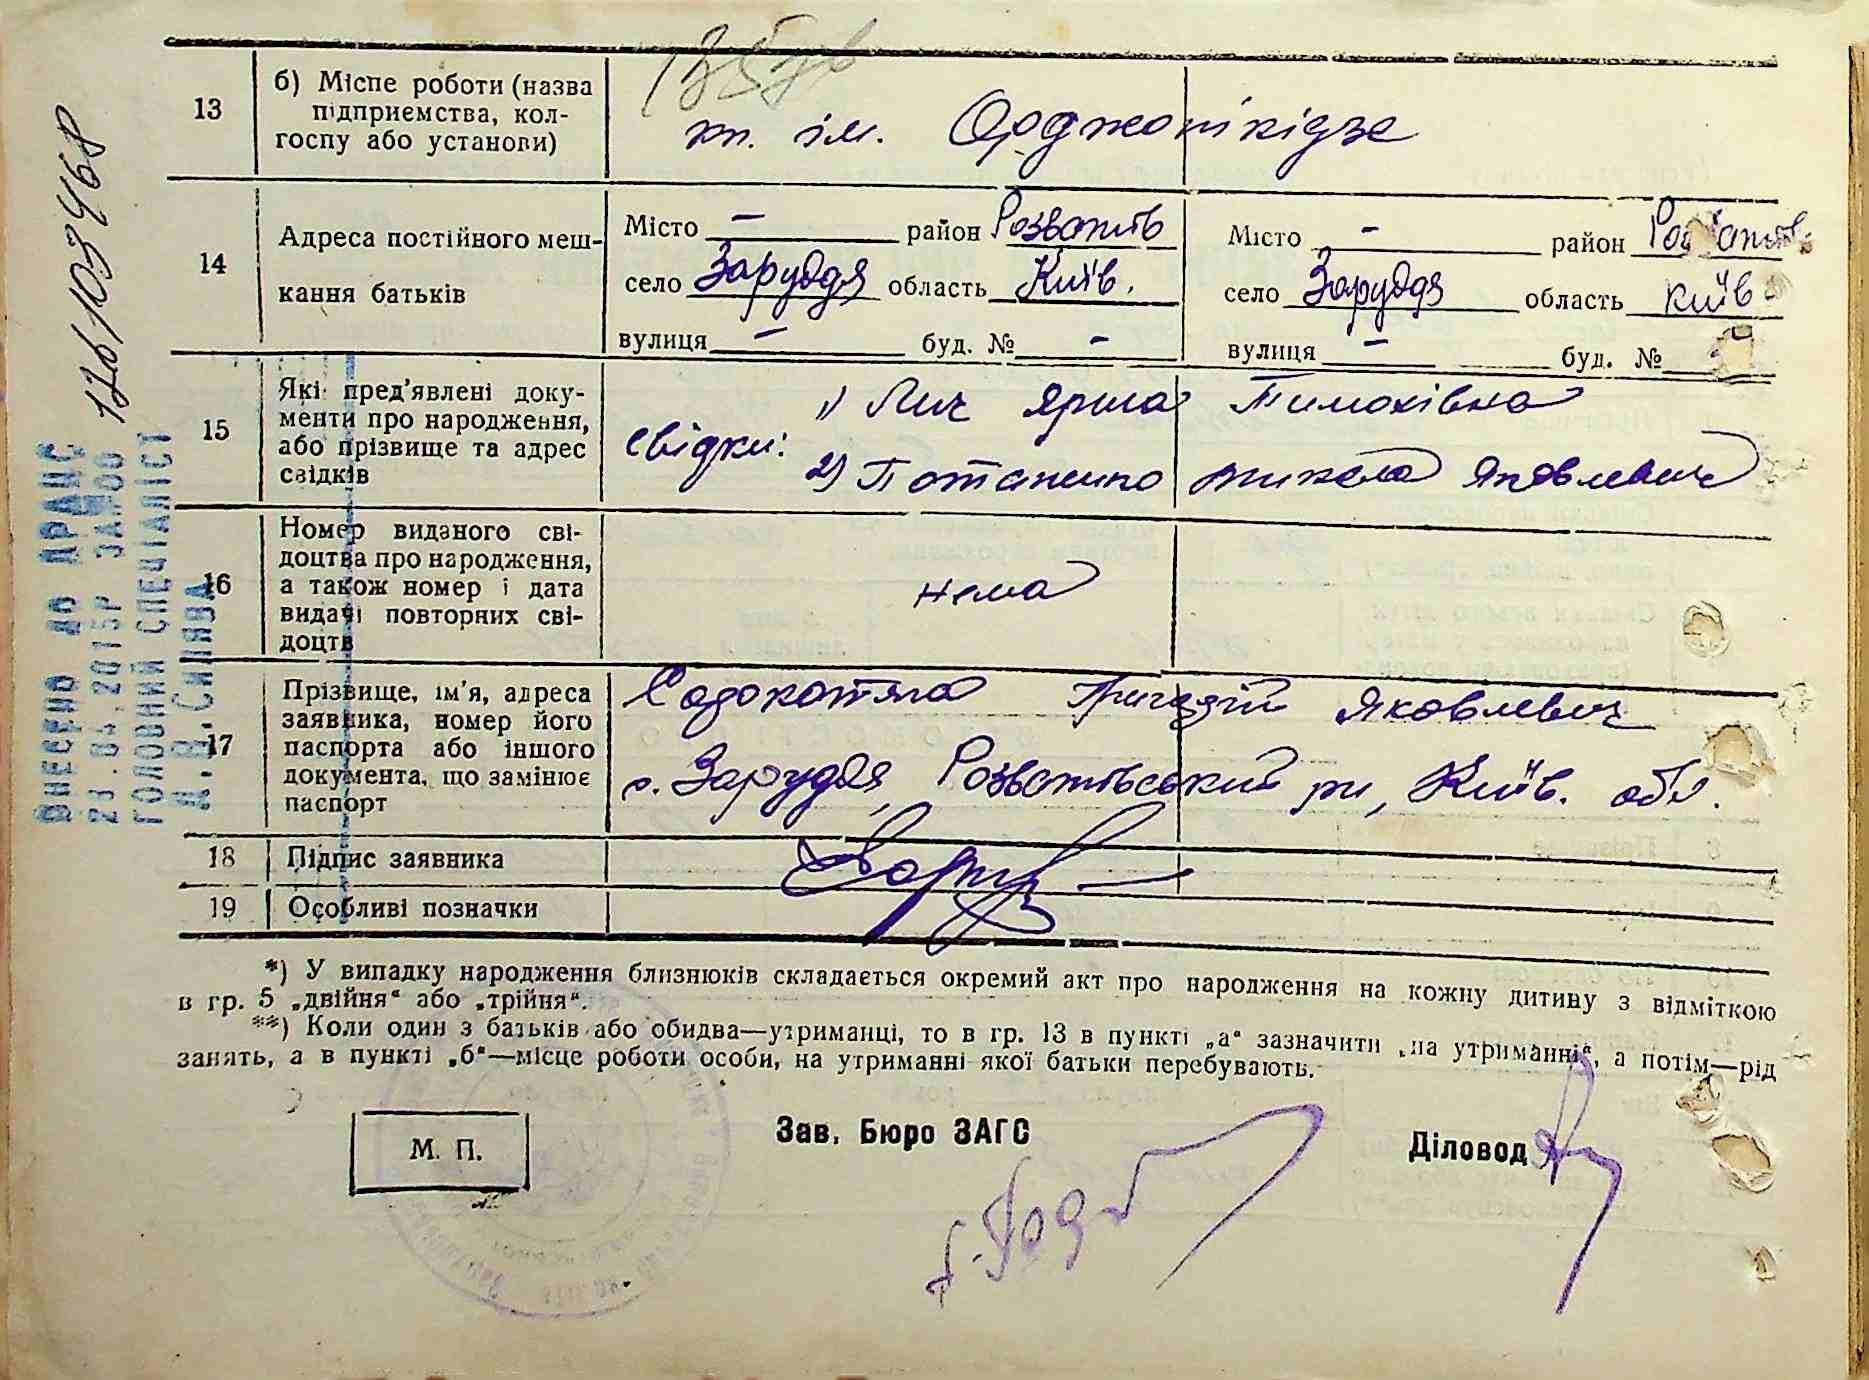 13
б) Місце роботи (назва
підприемства, кол-
госпу або установи)
кп. ім. Орджонікідзе
14
Адреса постійного меш-
кання батьків
Місто — район Розватів
село Заруддя область Київ.
вулиця — буд. № —
Місто — район
село Заруддя область Київ
вулиця — буд. №
15
Які пред'явлені доку-
менти про народження,
або прізвище та адрес
свідків
свідки: 1) Лич Ярина Тимохівна
2) Потапенко Микола Яковлевич
16
Номер виданого сві-
доцтва про народження,
а також номер і дата
видачі повторних сві-
доцтв
нема
17
Прізвище, ім'я, адреса
заявника, номер його
паспорта або іншого
документа, що замінює
паспорт
Яковлевич
с. Заруддя, Розватівський р-н, Київ. обл.
18
Підпис заявника
19
Особливі позначки
*) У випадку народження близнюків складається окремий акт про народження на кожну дитину з відміткою
в гр. 5 „двійня“ або „трійня“.
**) Коли один з батьків або обидва—утриманці, то в гр. 13 в пункті „а“ зазначити „на утриманні“, а потім—рід
занять, а в пункті „б“—місце роботи особи, на утриманні якої батьки перебувають.
М. П.
Зав. Бюро ЗАГС
Діловод
ВНЕСЕНО ДО ДРАЦС
23.04.2015Р ЗА№00
126103468
ГОЛОВНИЙ СПЕЦІАЛІСТ